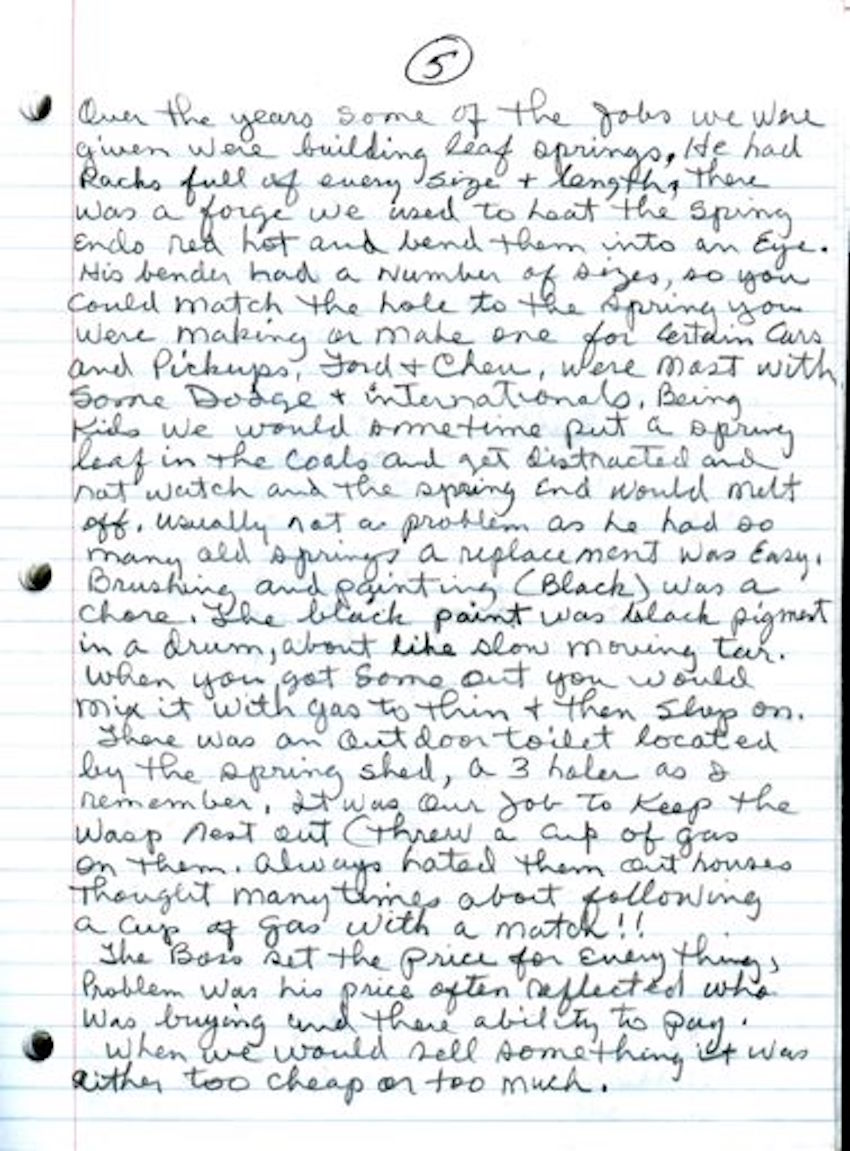 5
Over the years some of the Jobs we were
given were building leaf springs, He had
Racks full of every size + length, there
was a forge we used to heat the spring
Ends red hot and bend them into an Eye.
His bender had a Number of sizes, so you
Could match the hole to the spring you
were making or make one for Certain Cars
and Pickups, Ford + Chev, were most with
Some Dodge + internationals. Being
Kids we would sometime put a spring
leaf in the Coals and get distracted and
not watch and the spring End would melt
off. usually not a problem as he had so
many old springs a replacement was Easy.
Brushing and painting (Black) was a
Chore. The black paint was black pigment
in a drum, about like slow moving tar.
When you got Some out you would
mix it with gas to thin + then slop on.
There was an outdoor toilet located
by the spring shed, a 3 holer as I
remember. It was Our Job To Keep the
Wasp Nest out (threw a Cup of gas
on them. Always hated them out houses
Thought many times about following
a Cup of Gas with a match!!
The Boss set the Price for Everything,
Problem was his price often reflected who
Was buying and there ability to pay.
When we would sell something it was
Either too Cheap or too much.